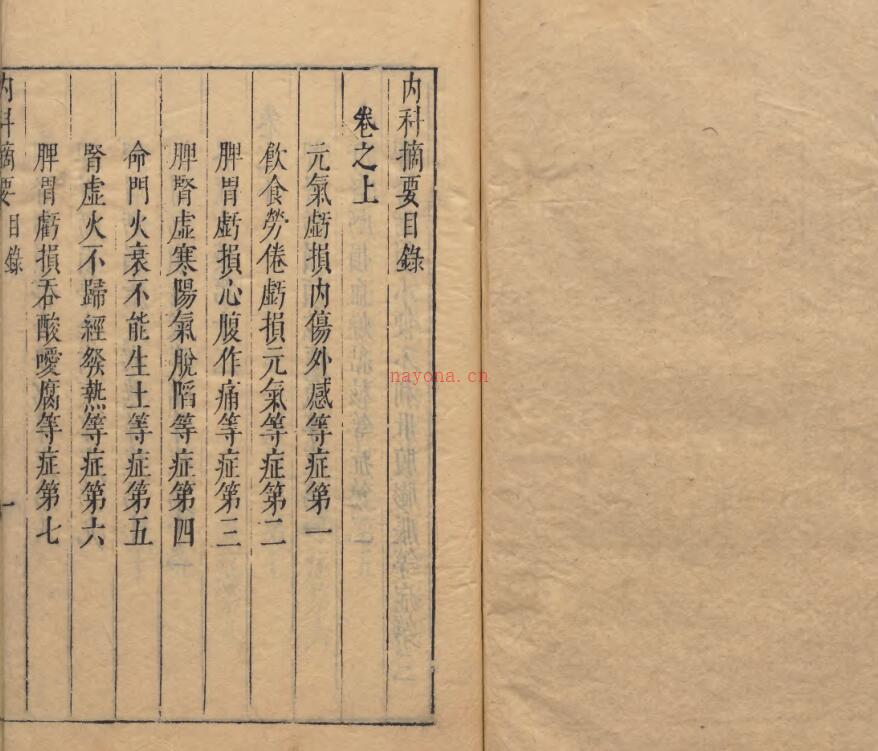 內科摘要目錄
卷之上
元氣虧損內傷外感等症第一
飲食勞倦虧損元氣等症第二
脾胃虧損心腹作痛等症第三
脾腎虛寒陽氣脫陷等症第四
命門火衰不能生土等症第五
腎虛火不歸經發熱等症第六
脾胃虧損吞酸噯腐等症第七
內科摘要 目錄 一
nayona.cn